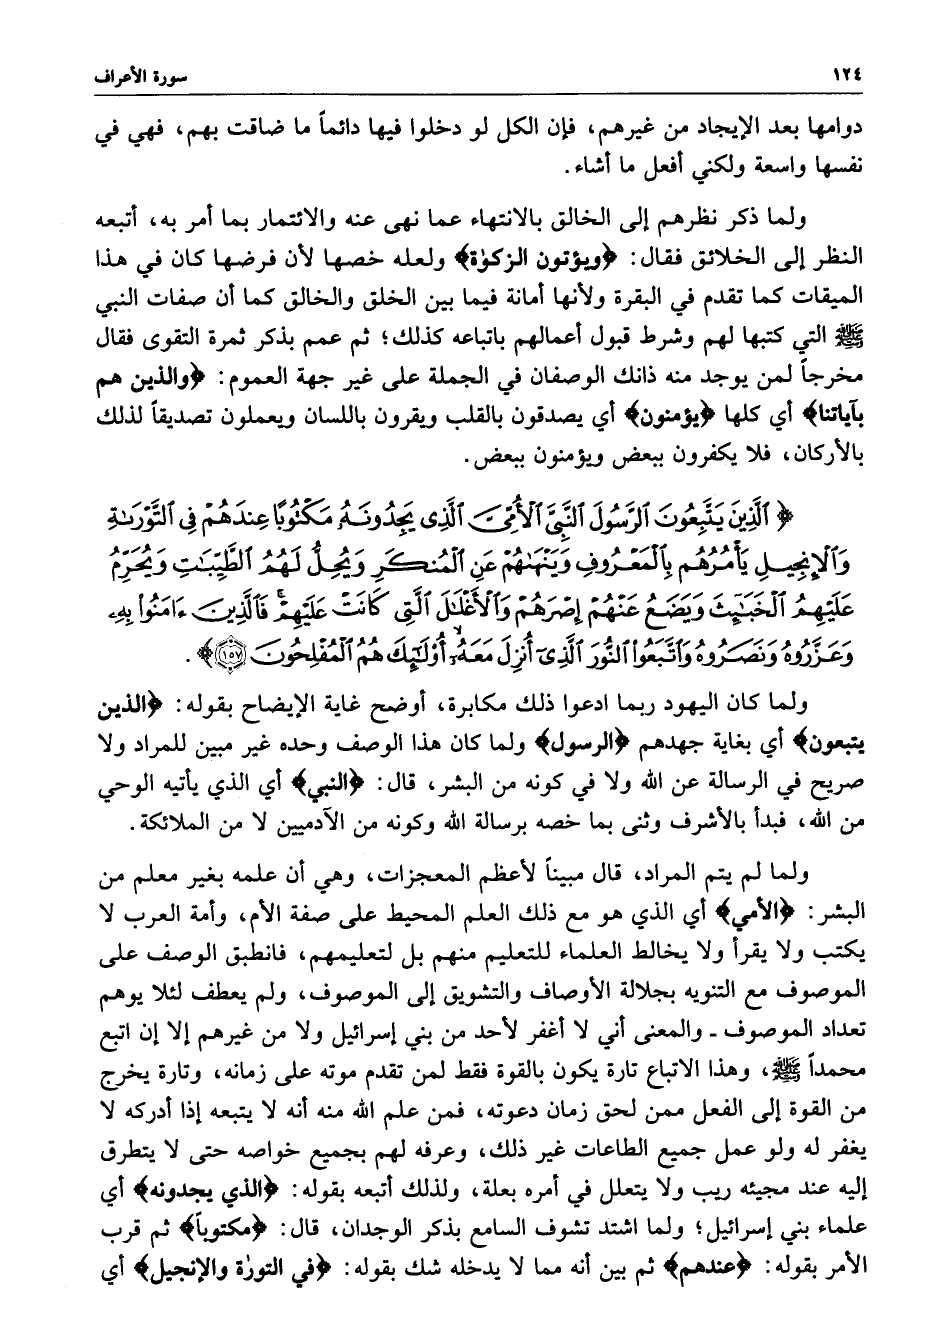 ١٢٤ سورة الأعراف
دوامها بعد الإيجاد من غيرهم، فإن الكل لو دخلوا فيها دائماً ما ضاقت بهم، فهي في
نفسها واسعة ولكني أفعل ما أشاء.
ولما ذكر نظرهم إلى الخالق بالانتهاء عما نهى عنه والائتمار بما أمر به، أتبعه
النظر إلى الخلائق فقال: ﴿ويؤتون الزكوٰة﴾ ولعله خصها لأن فرضها كان في هذا
الميقات كما تقدم في البقرة ولأنها أمانة فيما بين الخلق والخالق كما أن صفات النبي
ﷺ التي كتبها لهم وشرط قبول أعمالهم باتباعه كذلك؛ ثم عمم بذكر ثمرة التقوى فقال
مخرجاً لمن يوجد منه ذانك الوصفان في الجملة على غير جهة العموم: ﴿والذين هم
بآياتنا﴾ أي كلها ﴿يؤمنون﴾ أي يصدقون بالقلب ويقرون باللسان ويعملون تصديقاً لذلك
بالأركان، فلا يكفرون ببعض ويؤمنون ببعض.
﴿ ٱلَّذِينَ يَتَّبِعُونَ ٱلرَّسُولَ ٱلنَّبِىَّ ٱلْأُمِّىَّ ٱلَّذِى يَجِدُونَهُۥ مَكْتُوبًا عِندَهُمْ فِى ٱلتَّوْرَىٰةِ
وَٱلْإِنجِيلِ يَأْمُرُهُم بِٱلْمَعْرُوفِ وَيَنْهَىٰهُمْ عَنِ ٱلْمُنكَرِ وَيُحِلُّ لَهُمُ ٱلطَّيِّبَٰتِ وَيُحَرِّمُ
عَلَيْهِمُ ٱلْخَبَٰٓئِثَ وَيَضَعُ عَنْهُمْ إِصْرَهُمْ وَٱلْأَغْلَٰلَ ٱلَّتِى كَانَتْ عَلَيْهِمْ ۚ فَٱلَّذِينَ ءَامَنُوا۟ بِهِۦ
وَعَزَّرُوهُ وَنَصَرُوهُ وَٱتَّبَعُوا۟ ٱلنُّورَ ٱلَّذِىٓ أُنزِلَ مَعَهُۥٓ ۙ أُو۟لَٰٓئِكَ هُمُ ٱلْمُفْلِحُونَ ١٥٧﴾.
ولما كان اليهود ربما ادعوا ذلك مكابرة، أوضح غاية الإيضاح بقوله: ﴿الذين
يتبعون﴾ أي بغاية جهدهم ﴿الرسول﴾ ولما كان هذا الوصف وحده غير مبين للمراد ولا
صريح في الرسالة عن الله ولا في كونه من البشر، قال: ﴿النبي﴾ أي الذي يأتيه الوحي
من الله، فبدأ بالأشرف وثنى بما خصه برسالة الله وكونه من الآدميين لا من الملائكة.
ولما لم يتم المراد، قال مبيناً لأعظم المعجزات، وهي أن علمه بغير معلم من
البشر: ﴿الأمي﴾ أي الذي هو مع ذلك العلم المحيط على صفة الأم، وأمة العرب لا
يكتب ولا يقرأ ولا يخالط العلماء للتعليم منهم بل لتعليمهم، فانطبق الوصف على
الموصوف مع التنويه بجلالة الأوصاف والتشويق إلى الموصوف، ولم يعطف لئلا يوهم
تعداد الموصوف ـ والمعنى أني لا أغفر لأحد من بني إسرائيل ولا من غيرهم إلا إن اتبع
محمداً ﷺ، وهذا الاتباع تارة يكون بالقوة فقط لمن تقدم موته على زمانه، وتارة يخرج
من القوة إلى الفعل ممن لحق زمان دعوته، فمن علم الله منه أنه لا يتبعه إذا أدركه لا
يغفر له ولو عمل جميع الطاعات غير ذلك، وعرفه لهم بجميع خواصه حتى لا يتطرق
إليه عند مجيئه ريب ولا يتعلل في أمره بعلة، ولذلك أتبعه بقوله: ﴿الذي يجدونه﴾ أي
علماء بني إسرائيل؛ ولما اشتد تشوف السامع بذكر الوجدان، قال: ﴿مكتوباً﴾ ثم قرب
الأمر بقوله: ﴿عندهم﴾ ثم بين أنه مما لا يدخله شك بقوله: ﴿في التورٰة والإنجيل﴾ أي